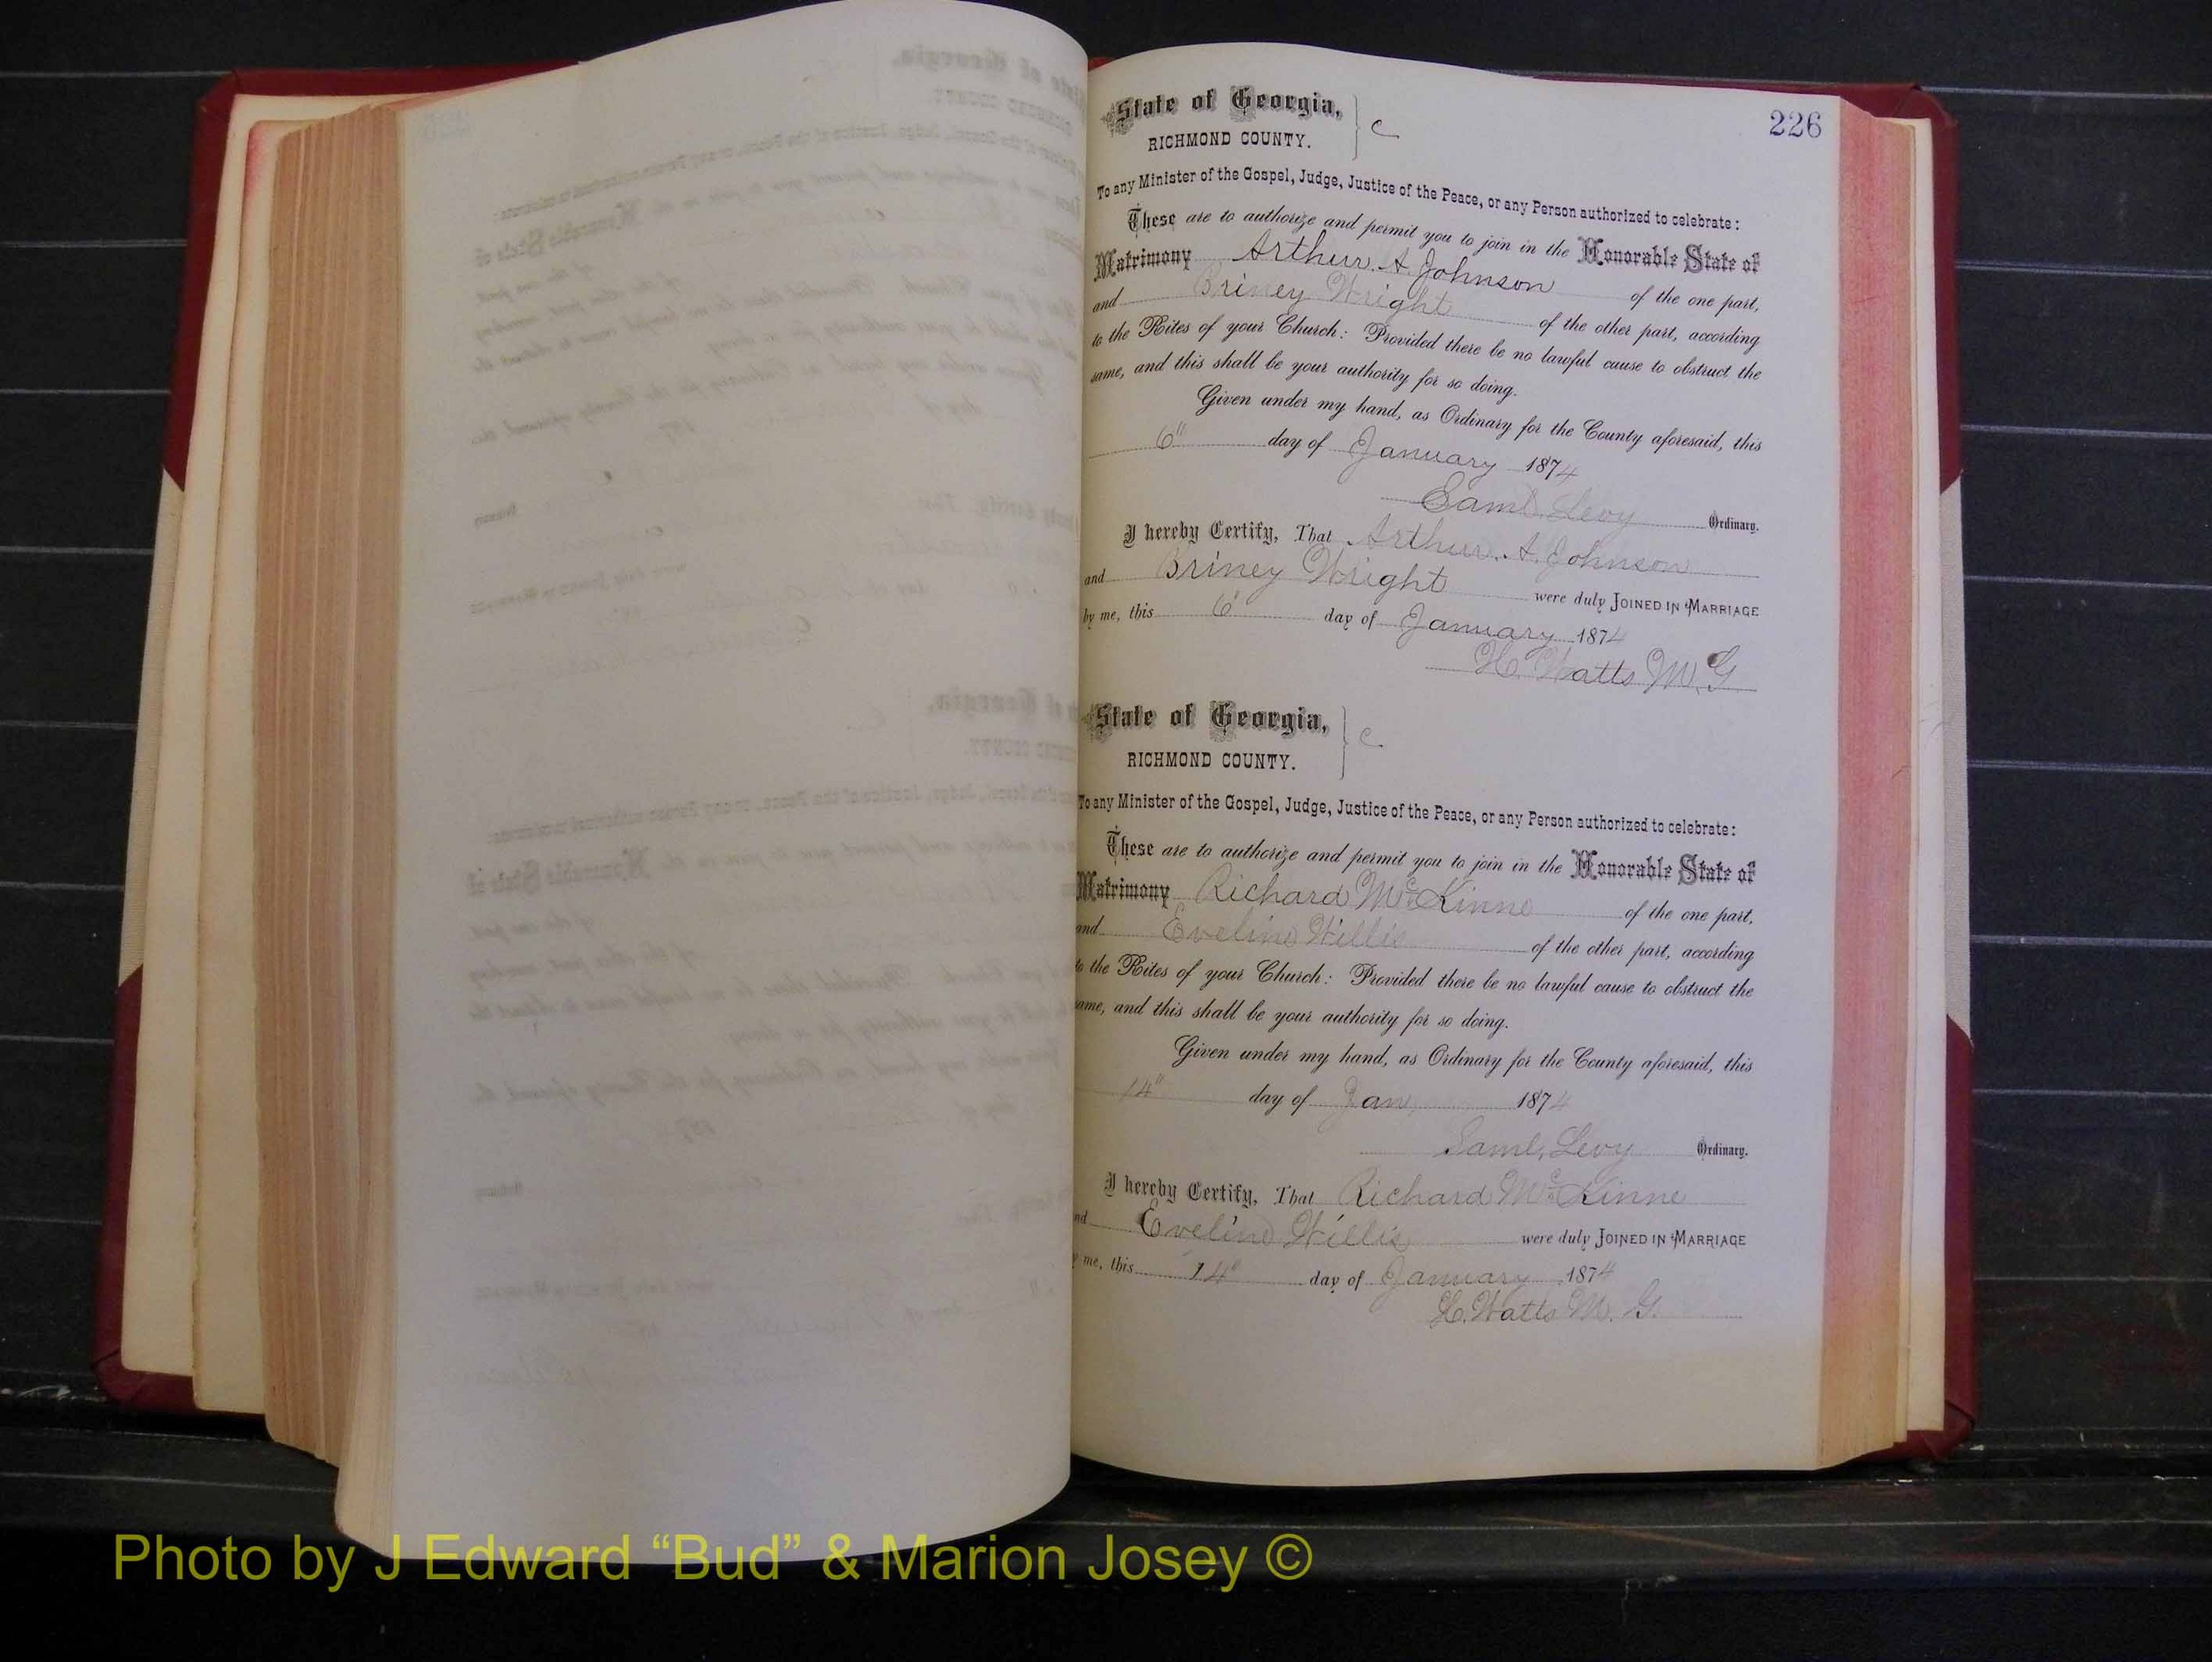 226
State of Georgia, } c
RICHMOND COUNTY.
To any Minister of the Gospel, Judge, Justice of the Peace, or any Person authorized to celebrate:
These are to authorize and permit you to join in the Honorable State of
Matrimony Arthur. A. Johnson of the one part,
and Briney Wright of the other part, according
to the Rites of your Church: Provided there be no lawful cause to obstruct the
same, and this shall be your authority for so doing.
Given under my hand, as Ordinary for the County aforesaid, this
6" day of January 1874
Saml. Levy Ordinary.
I hereby Certify, That Arthur. A. Johnson
and Briney Wright were duly JOINED IN MARRIAGE
by me, this 6" day of January 1874
H. Watts M. G.
State of Georgia, } c
RICHMOND COUNTY.
To any Minister of the Gospel, Judge, Justice of the Peace, or any Person authorized to celebrate:
These are to authorize and permit you to join in the Honorable State of
Matrimony Richard McKinne of the one part,
and Eveline Willis of the other part, according
to the Rites of your Church: Provided there be no lawful cause to obstruct the
same, and this shall be your authority for so doing.
Given under my hand, as Ordinary for the County aforesaid, this
14" day of Jan, 1874
Saml. Levy Ordinary.
I hereby Certify, That Richard McKinne
nd Eveline Willis were duly JOINED IN MARRIAGE
y me, this 14" day of January 1874
H. Watts M. G.
Photo by J Edward “Bud” & Marion Josey ©